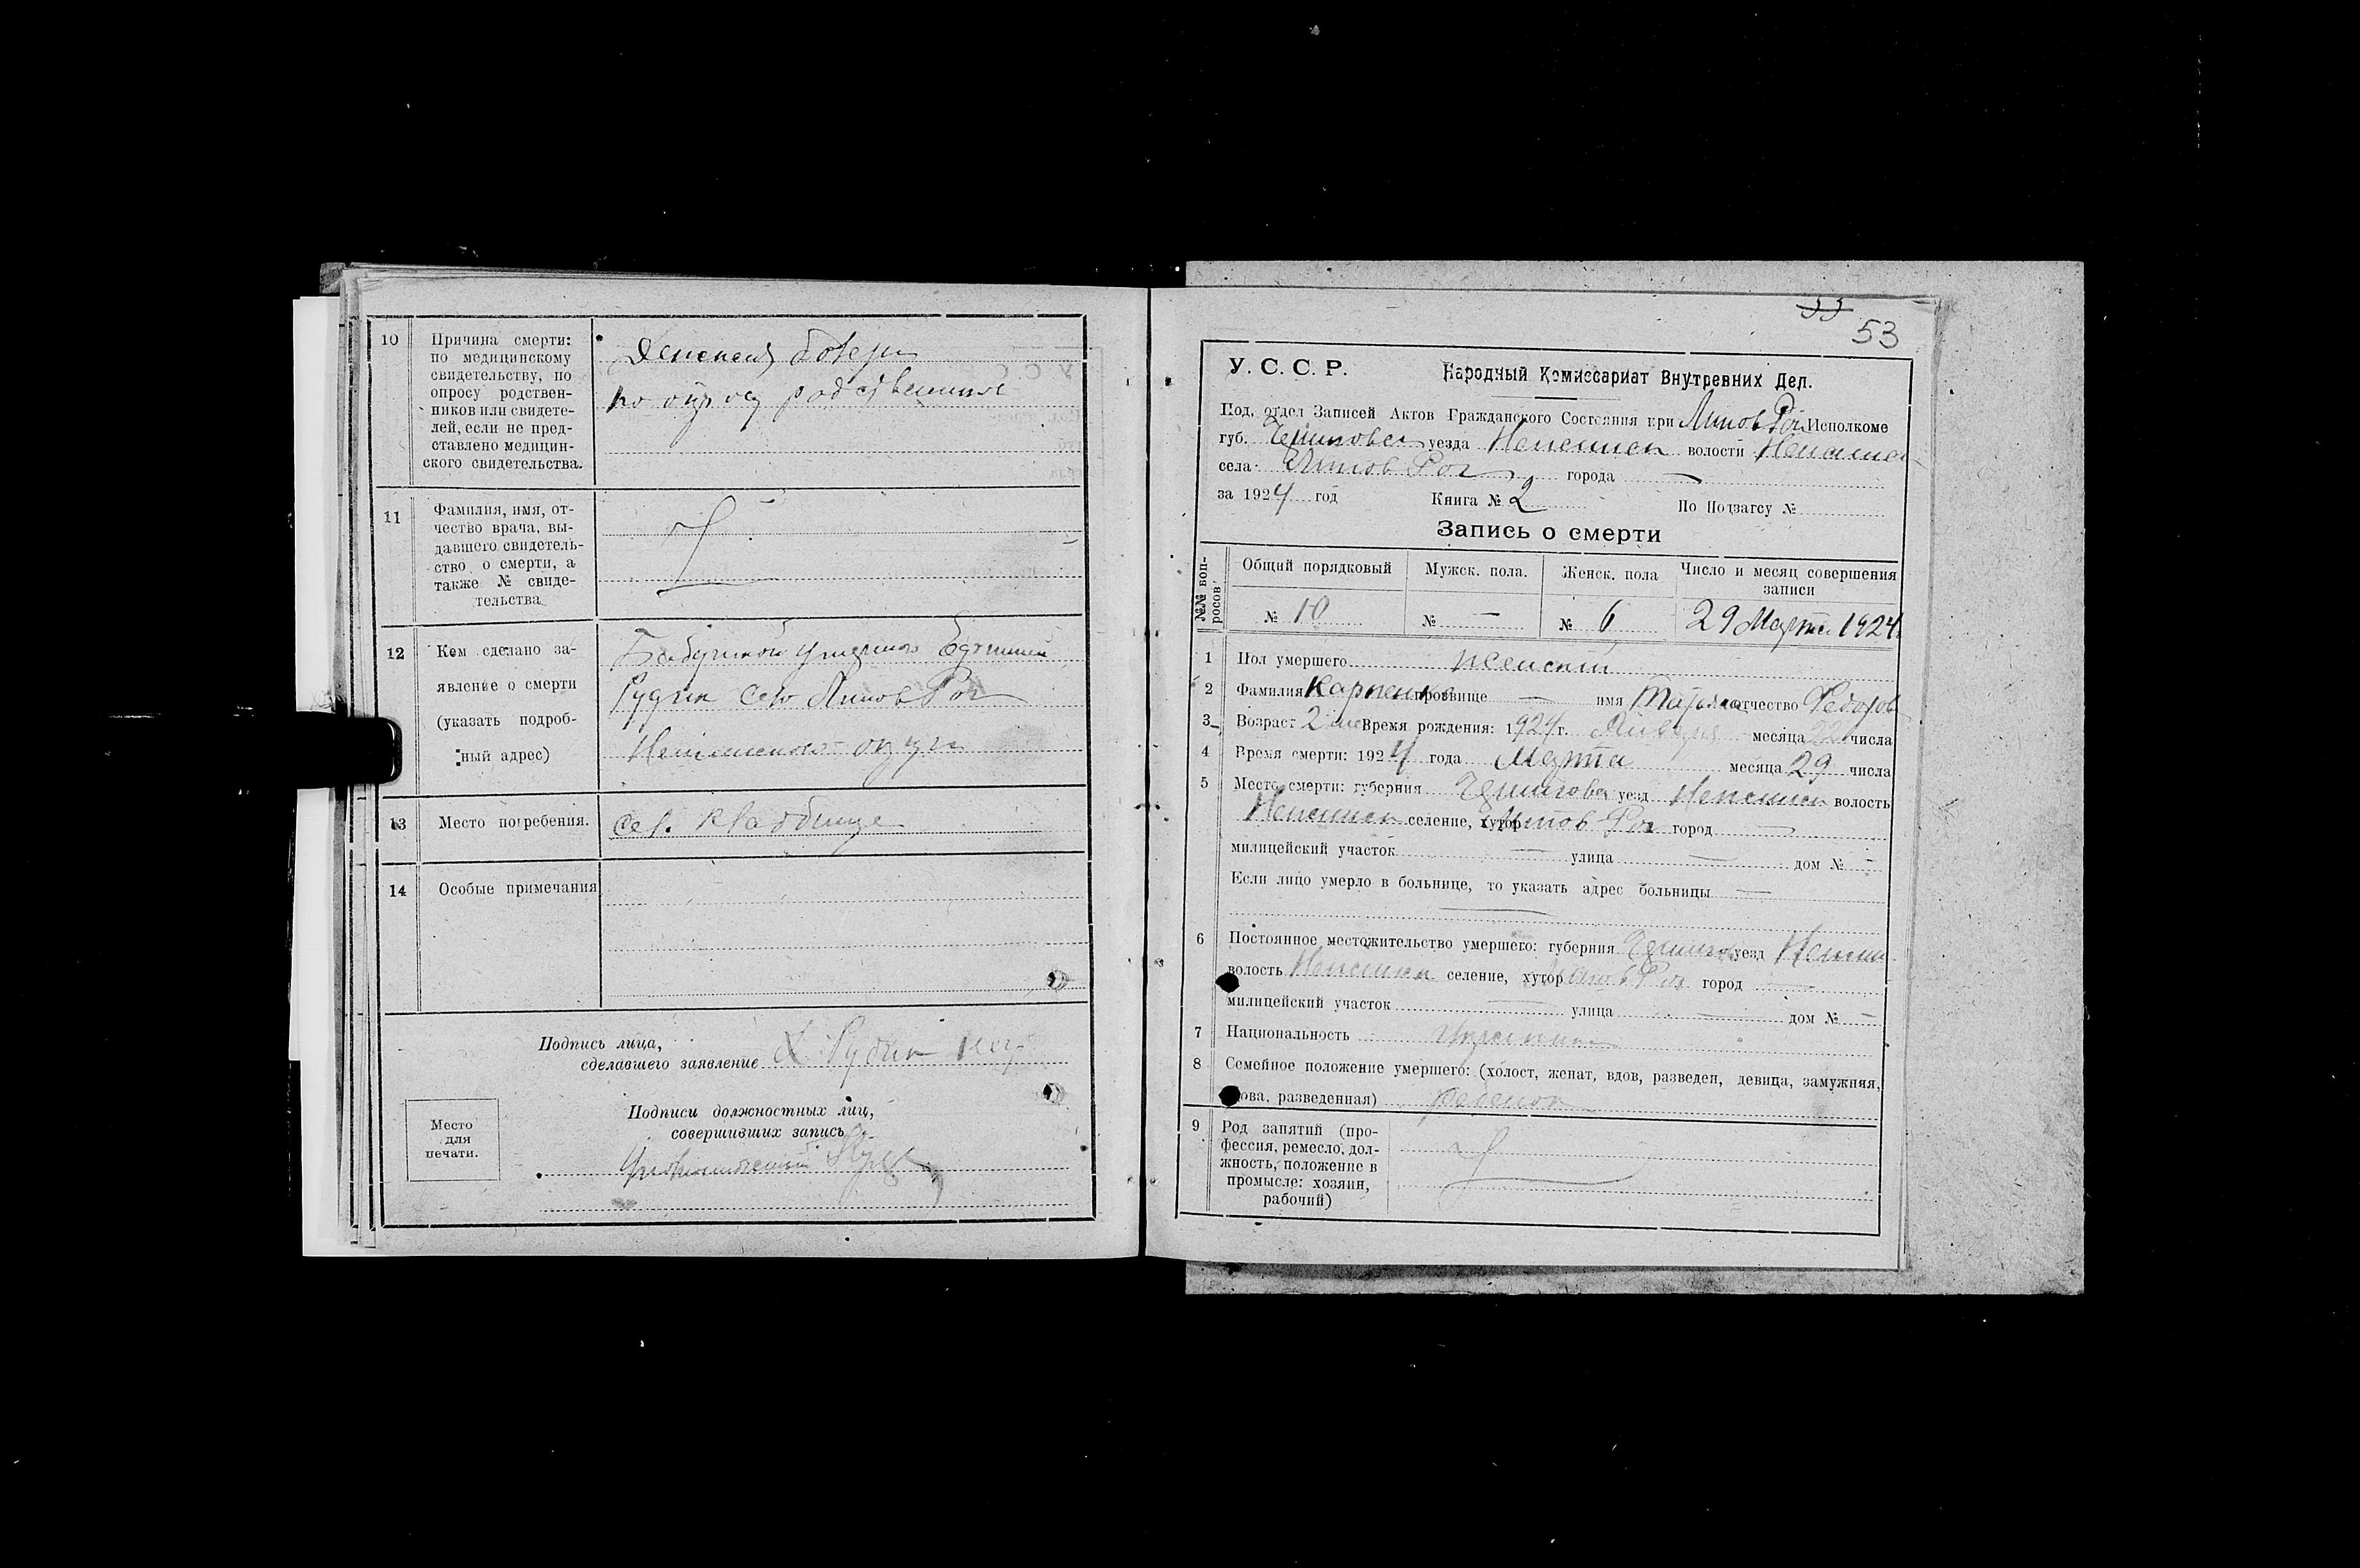 10 Причина смерти:
по медицинскому
свидетельству, по
опросу родствен-
ников или свидете-
лей, если не пред-
ставлено медицин-
ского свидетельства.
по опросу родственников
11 Фамилия, имя, от-
чество врача, вы-
давшего свидетель-
ство о смерти, а
также № свиде-
тельства
12 Кем сделано за-
явление о смерти
(указать подроб-
ный адрес)
Бабушкой
Рудик село Липов Рог
округа
13 Место погребения. Сел. кладбище
14 Особые примечания
Подпись лица,
сделавшего заявление Рудик
Подписи должностных лиц,
совершивших запись
Место
для
печати.
53
У. С. С. Р. Народный Комиссариат Внутревних Дел.
Под. отдел Записей Актов Гражданского Состояния при Липов Рог Исполкоме
губ. Черниговск уезда Нежинск волости Нежинск
села Липов Рог города —
за 1924 год Книга № 2 По Подзагсу №
Запись о смерти
№№ воп-
росов
Общий порядковый Мужск. пола. Женск. пола Число и месяц совершения
записи
№ 10 № — № 6 29 Марта 1924
1 Пол умершего женский
2 Фамилия Карпенко прозвище — имя отчество Федоров
3 Возраст 2 мес Время рождения: 1924 г. Января месяца 22 числа
4 Время смерти: 1924 года Марта месяца 29 числа
5 Место смерти: губерния Чернигов уезд Нежинск волость
Нежинск селение, хутор Липов Рог город —
милицейский участок — улица — дом № —
Если лицо умерло в больнице, то указать адрес больницы —
6 Постоянное местожительство умершего: губерния Чернигов уезд Нежин
волость Нежинск селение, хутор Липов Рог город —
милицейский участок — улица — дом № —
7 Национальность
8 Семейное положение умершего: (холост, женат, вдов, разведен, девица, замужняя,
ова, разведенная) ребенок
9 Род занятий (про-
фессия, ремесло, дол-
жность, положение в
промысле: хозяин,
рабочий)